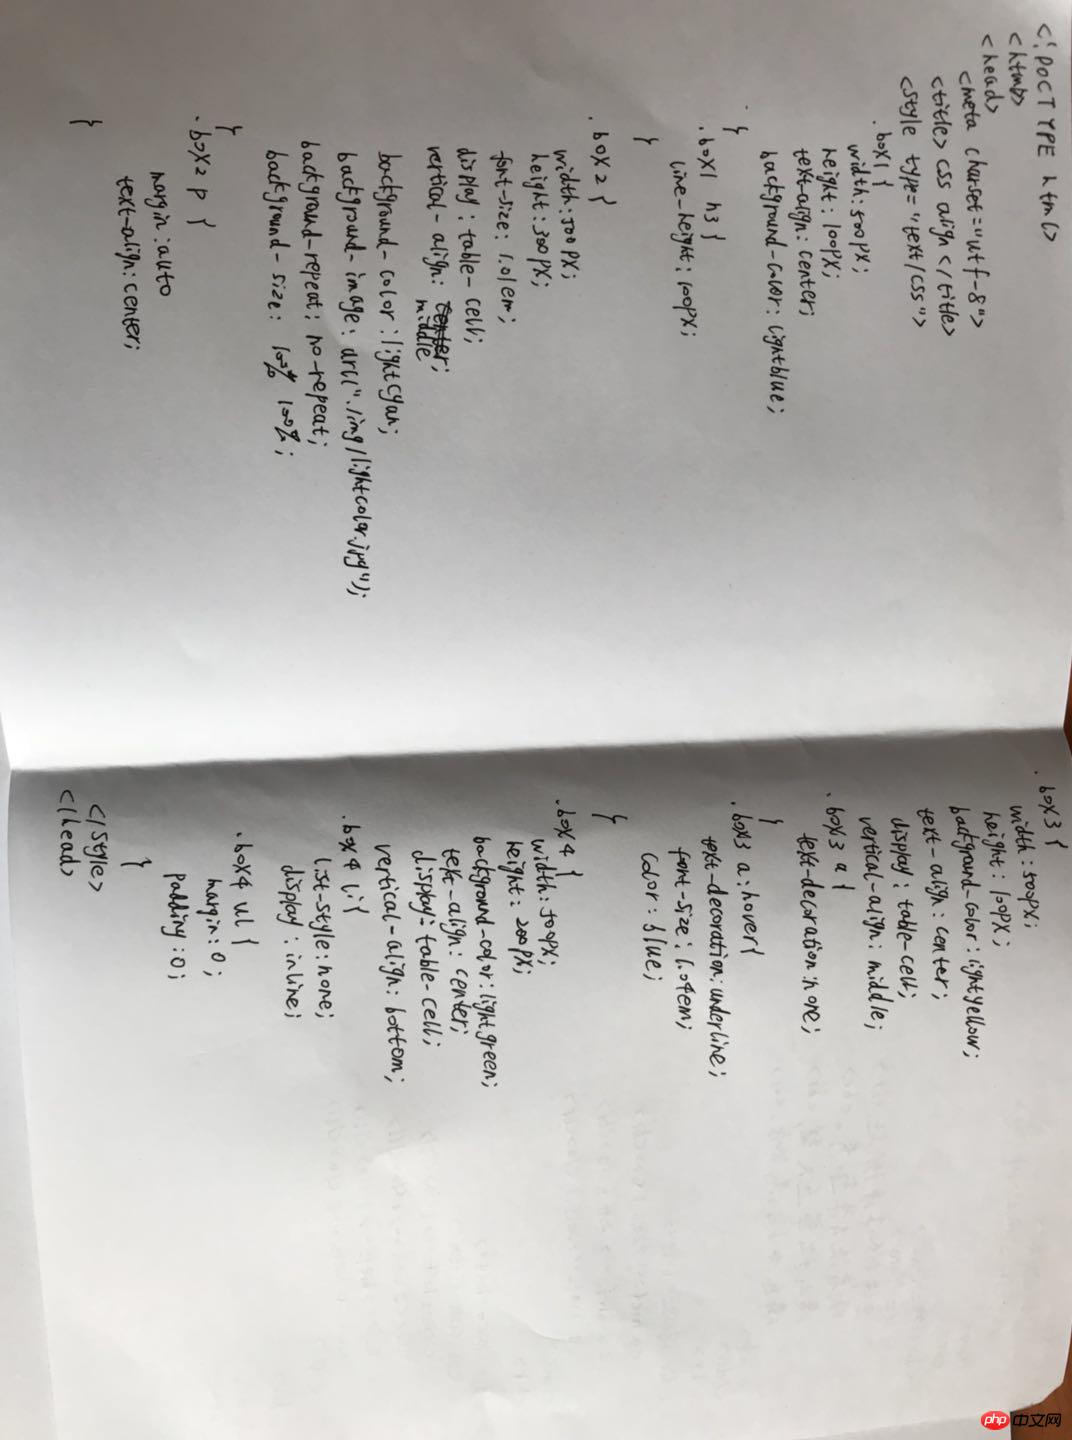 <!DOCTYPE html>
<html>
<head>
<meta charset="utf-8">
<title> css align </title>
<style type="text/css">
.box1 {
width:500px;
height:100px;
text-align:center;
background-color: lightblue;
}
.box1 h3 {
line-height:100px;
}
.box2 {
width:500px;
height:300px;
font-size: 1.01em;
display: table-cell;
vertical-align: middle;
background-color: lightcyan;
background-image: url("./img/lightcolor.jpg");
background-repeat: no-repeat;
background-size: 100% 100%;
}
.box2 p {
margin:auto
text-align:center;
}
.box3 {
width:500px;
height:100px;
background-color:lightyellow;
text-align:center;
display:table-cell;
vertical-align: middle;
.box3 a {
text-decoration:none;
}
.box3 a:hover{
text-decoration:underline;
font-size:1.04em;
color:blue;
}
.box4 {
width:500px;
height:200px;
background-color:lightgreen;
text-align:center;
display:table-cell;
vertical-align: bottom;
.box4 li{
list-style:none;
display:inline;
.box4 ul {
margin:0;
padding:0;
}
</style>
</head>
php 中文网